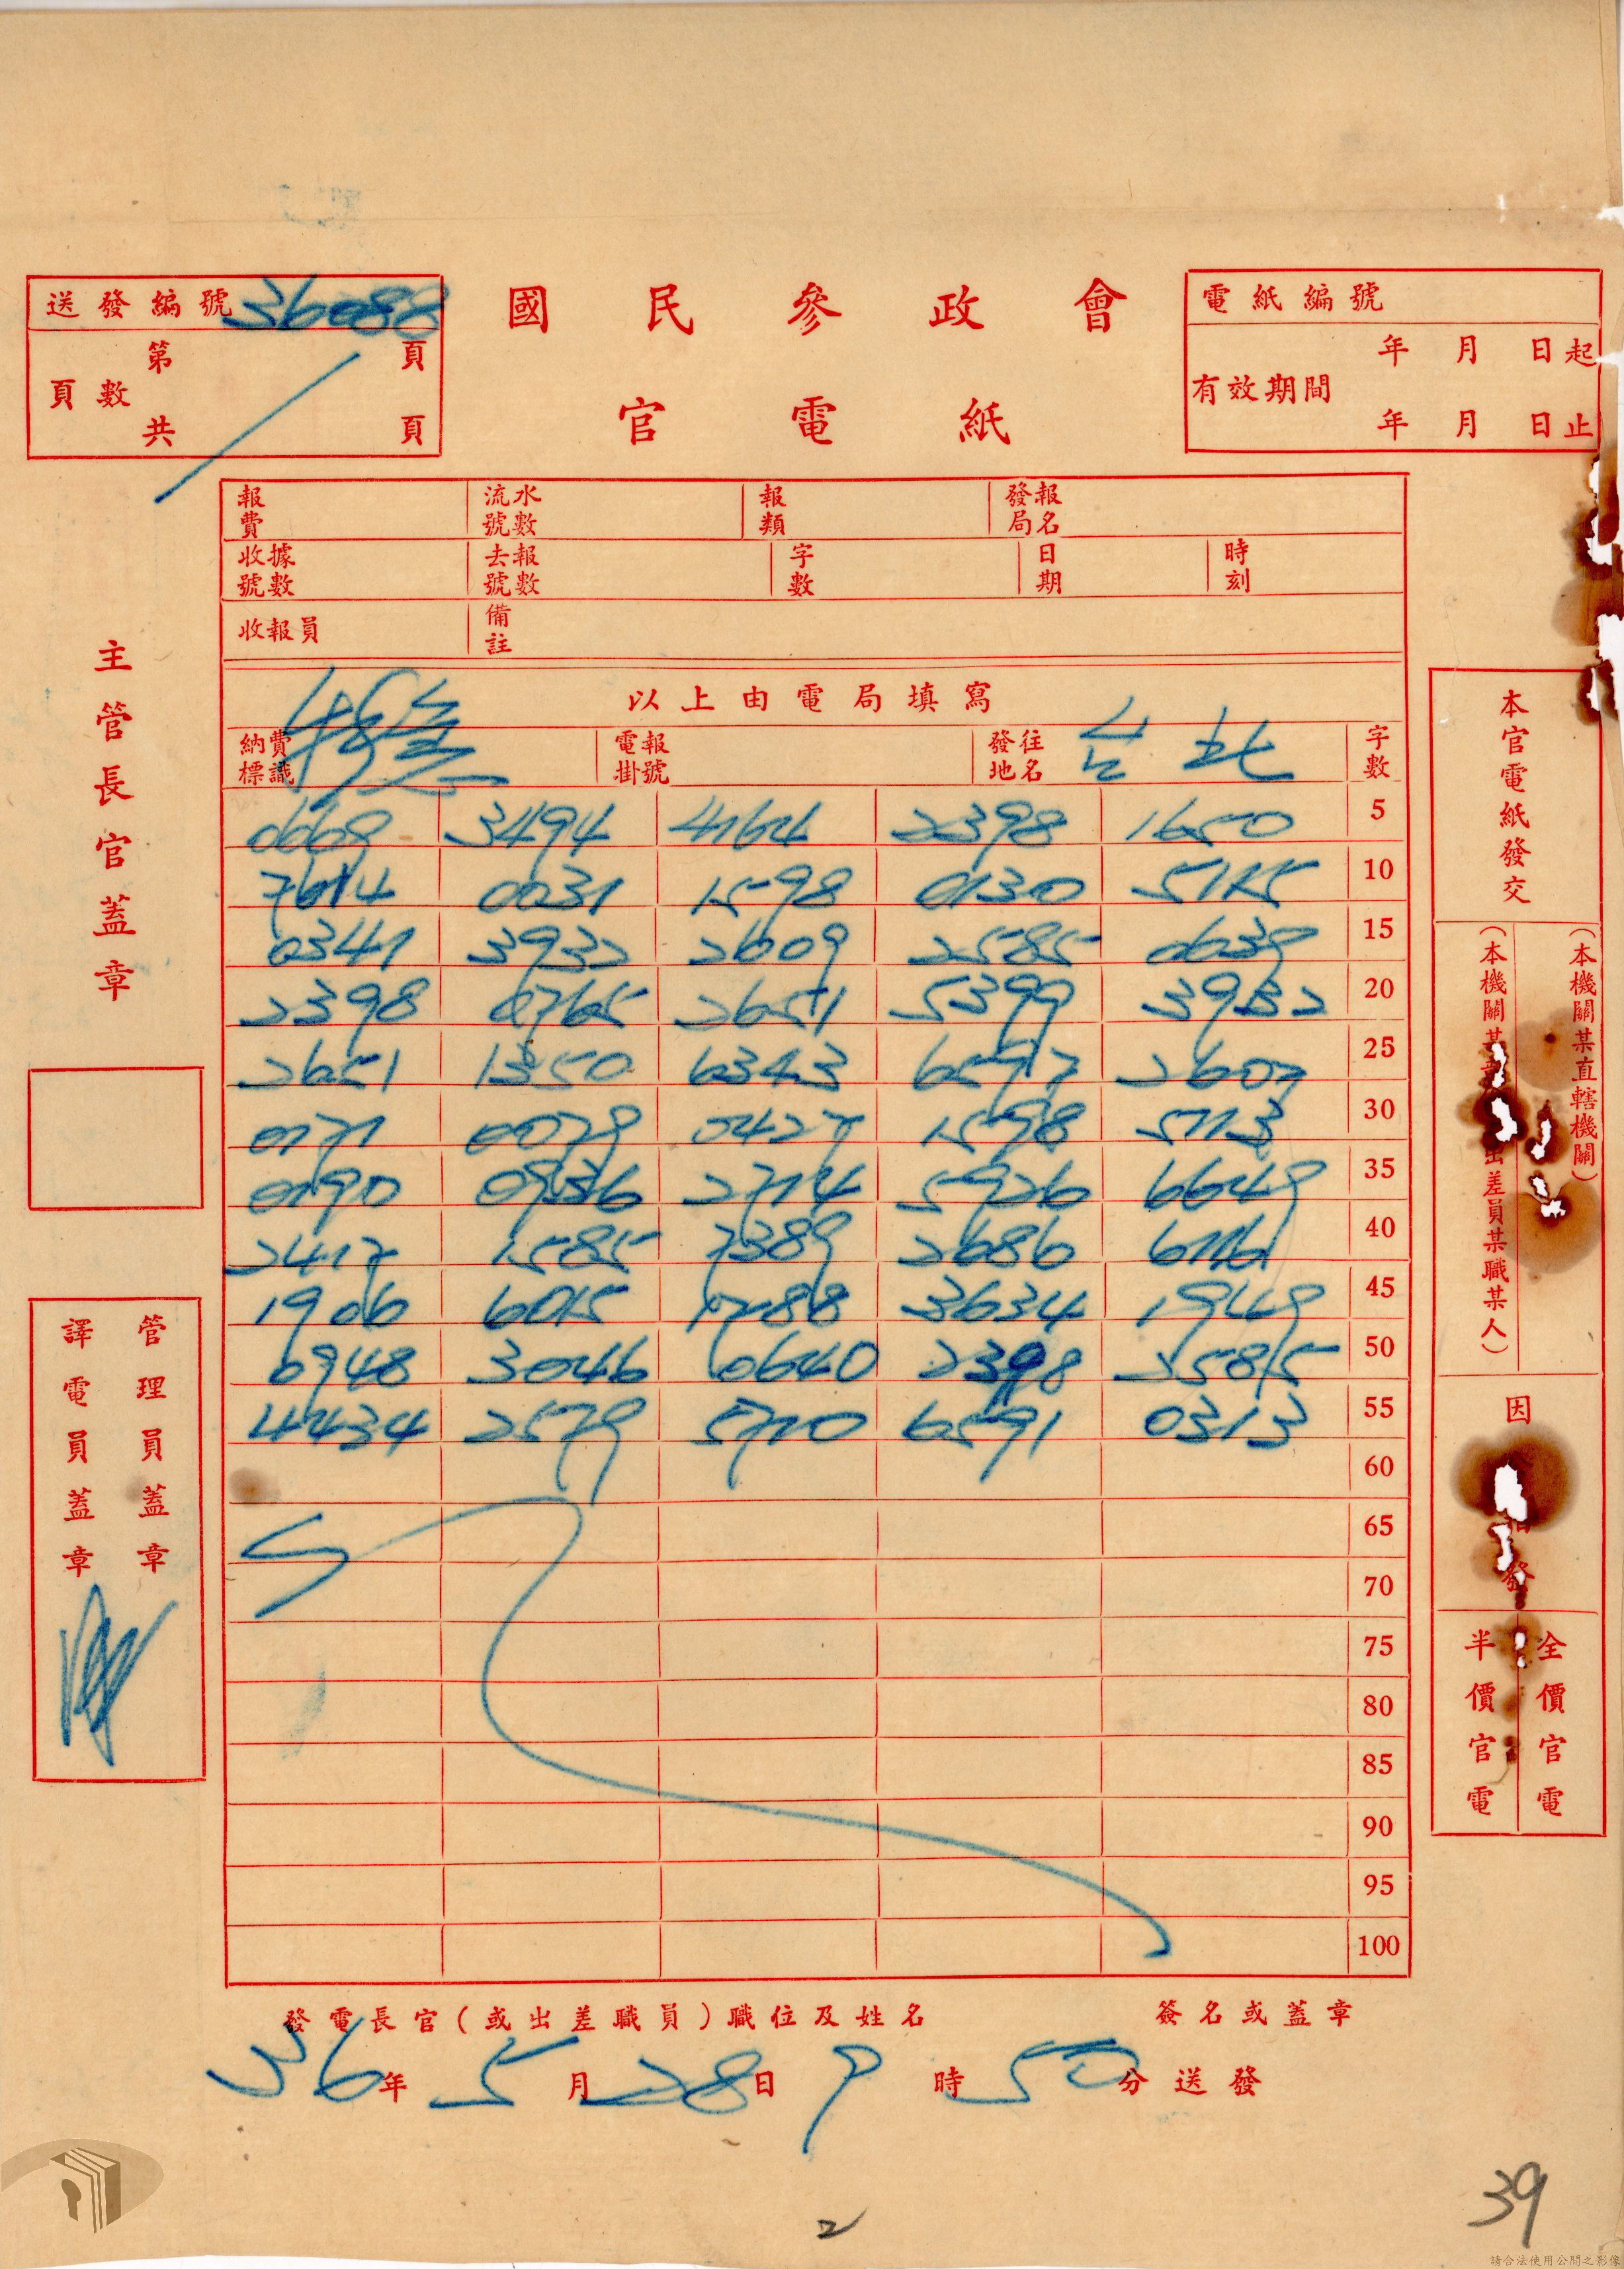 國民參政會
官電紙
送發編號 36088
頁數 第 頁
共 頁
電紙編號
有效期間 年 月 日起
年 月 日止
報費 流水號數 報類 發報局名
收據號數 去報號數 字數 日期 時刻
收報員 備註
以上由電局填寫
納費標識 電報掛號 發往地名 台北 字數
0668 3494 4164 2398 1650 5
7614 0031 1598 0130 5115 10
0341 3932 2609 2585 0639 15
2398 0765 2651 5399 3932 20
2651 1350 6343 6597 2607 25
0171 0079 0427 1598 5113 30
0190 0936 2714 5926 6649 35
2417 1585 7389 2686 6116 40
1906 6015 1788 3634 1949 45
6948 3046 0640 2398 2585 50
4434 2579 5710 6591 0313 55
60
65
70
75
80
85
90
95
100
發電長官(或出差職員)職位及姓名 簽名或蓋章
36年5月28日9時50分送發
主管長官蓋章
管理員蓋章
譯電員蓋章
本官電紙發交
(本機關某直轄機關)
(本機關某 出差員某職某人)
因 發
全價官電
半價官電
2
39
請合法使用公開之影像